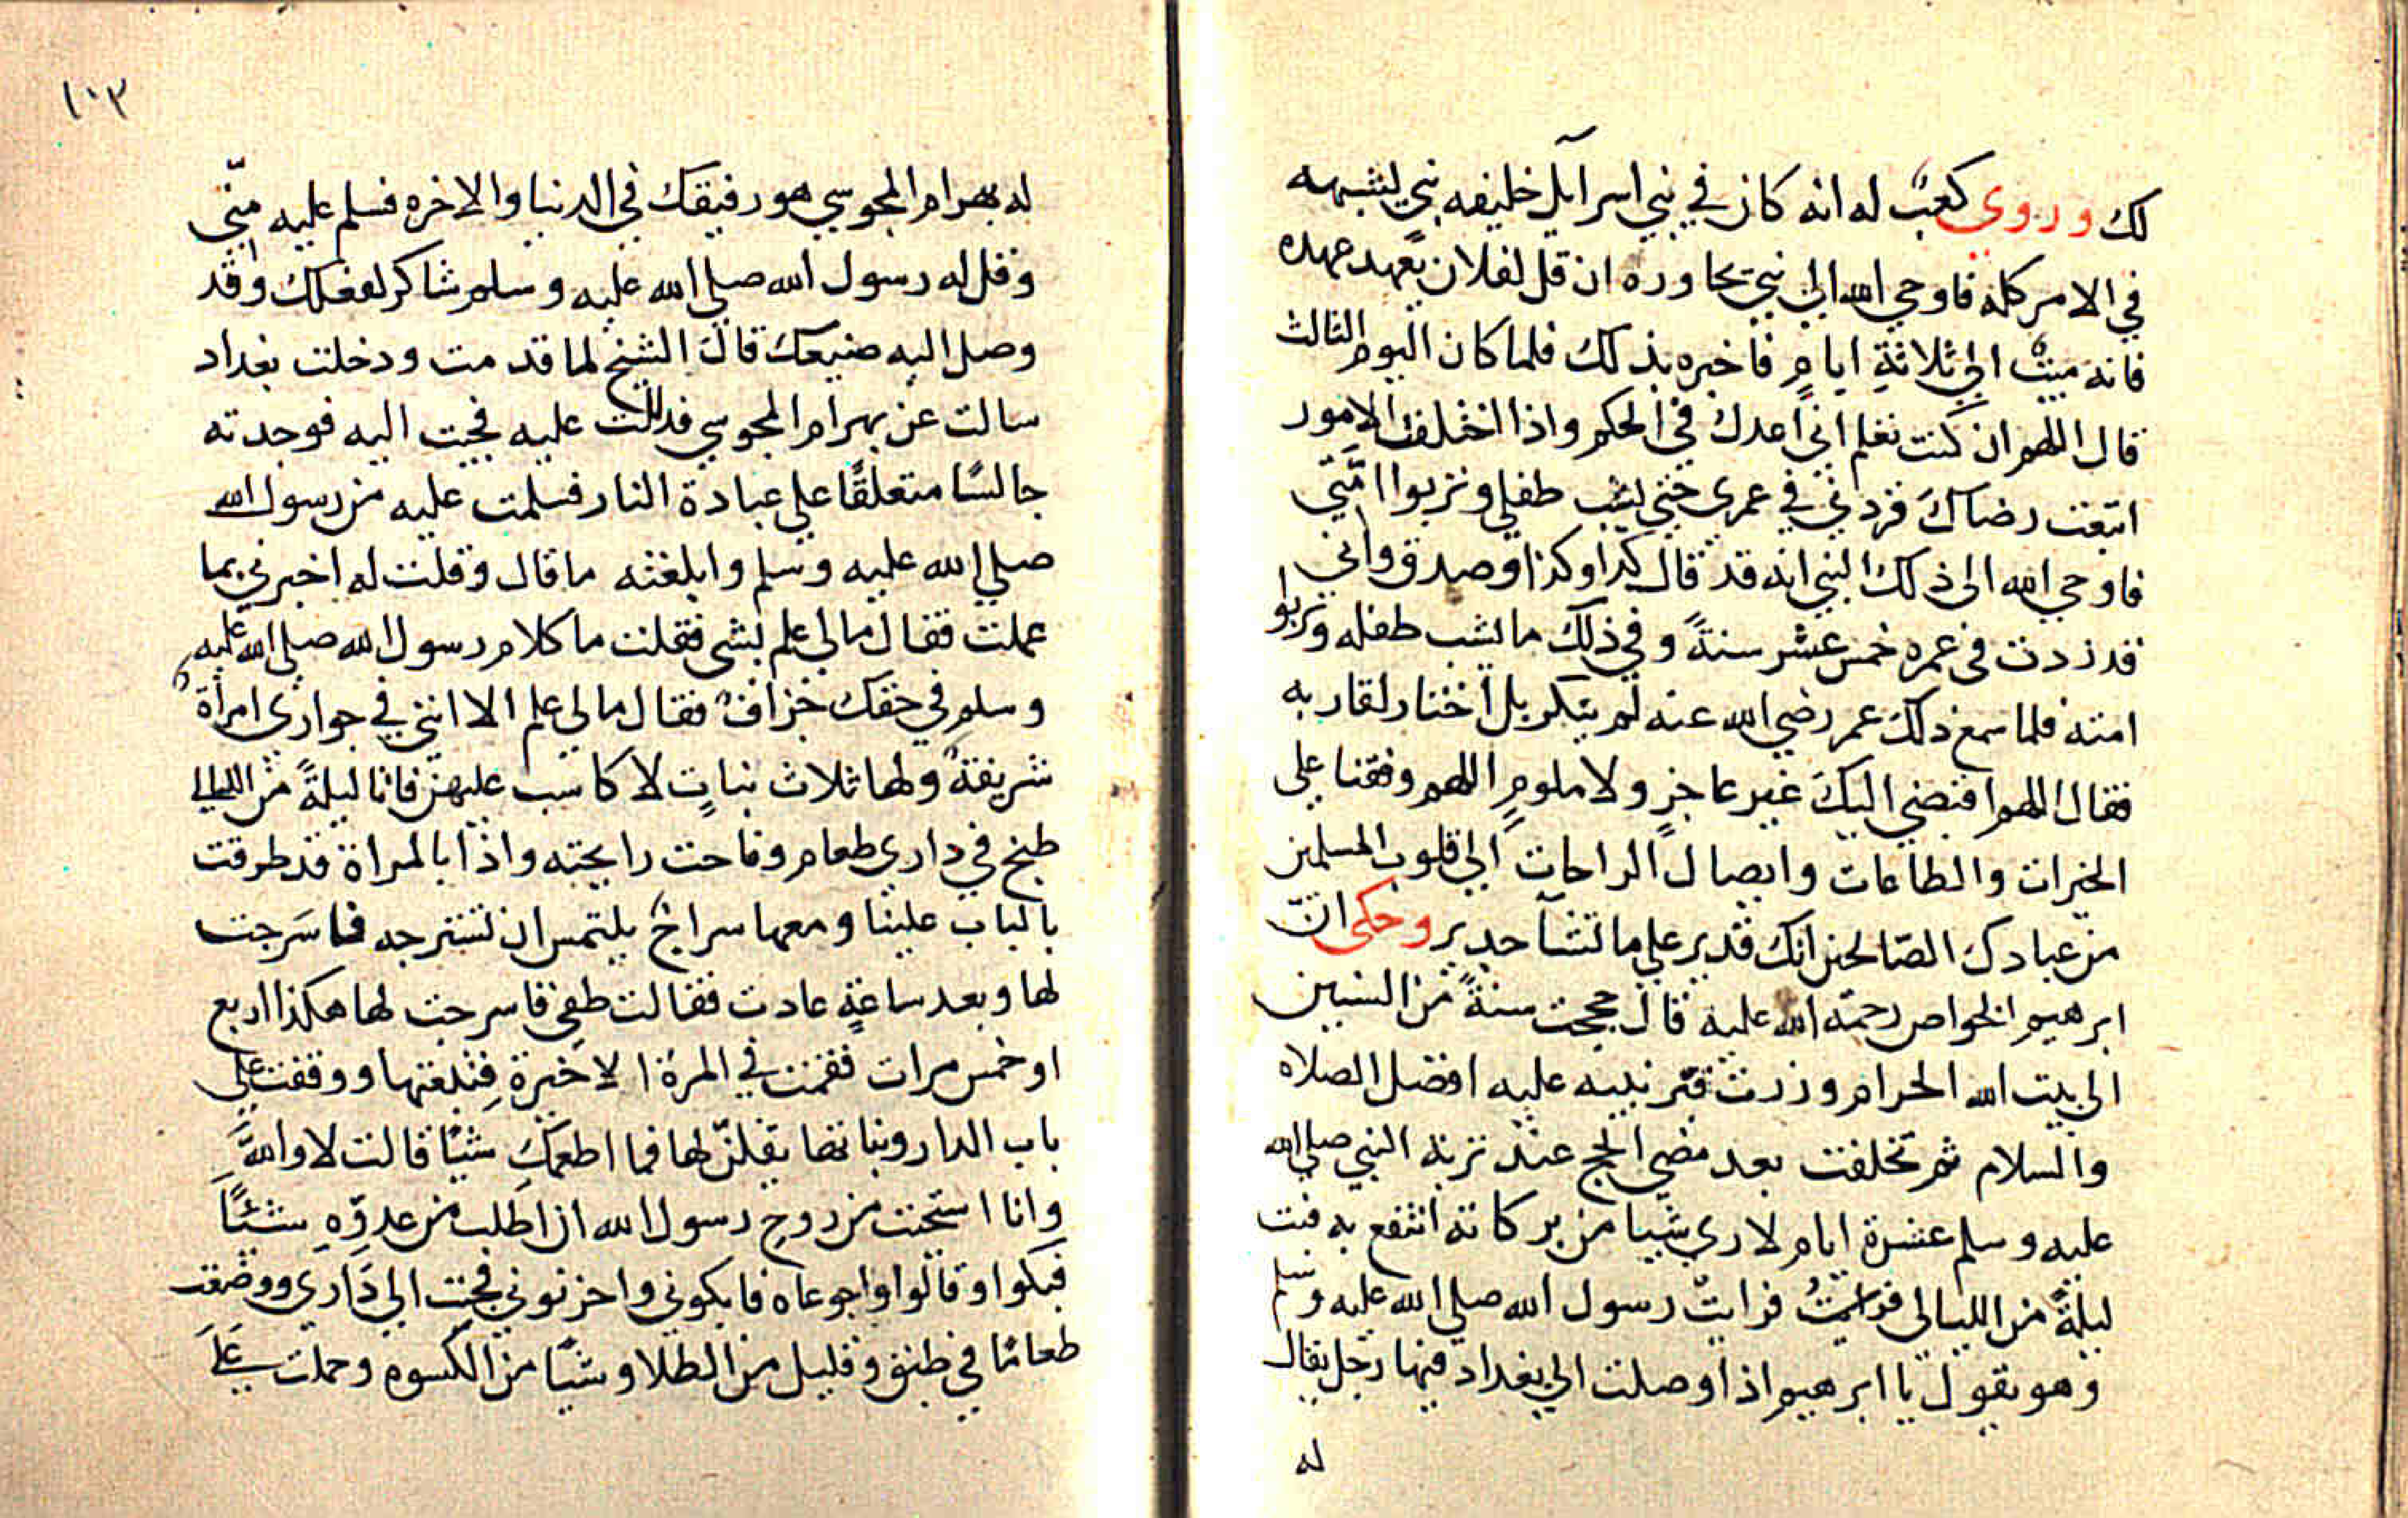 لك وروي كعب له انه كان في بني اسرآيل خليفه نبي يشبهه
في الامر كله فاوحي الله الى نبي يحاوره ان قل لفلان يعهد عهده
فانه ميت الي ثلاثة ايام فاخبره بذلك فلما كان اليوم الثالث
قال اللهم ان كنت تعلم اني اعدك في الحكم واذا اختلفت الامور
اتبعت رضاك فزدني في عمري حتي يشب طفلي وتربوا امتي
فاوحي الله الى ذلك النبي انه قد قال كذا وكذا وصدق واني
قد زدت في عمره خمس عشر سنة وفي ذلك ما يشب طفله وتربوا
امته فلما سمع ذلك عمر رضي الله عنه لم يتكر بل اختار لقاربه
فقال اللهم اقبضني اليك غير عاجز ولا ملوم اللهم وفقنا على
الخيرات والطاعات وايصال الراحات الي قلوب المسلمين
من عبادك الصالحين انك قدير علي ما تشآ جدير وحكى ان
ابرهيم الخواص رحمة الله عليه قال حججت سنة من السنين
الى بيت الله الحرام وزرت قبر نبيه عليه افضل الصلاه
والسلام ثم تخلفت بعد مضي الحج عند تربة النبي صلي الله
عليه وسلم عشرة ايام لاري شيا من بركاته انتفع به فبت
ليلة من الليالى فرايت رسول الله صلي الله عليه وسلم
وهو يقول يا ابرهيم اذا وصلت الي بغداد فيها رجل يقال
له
١٠٣
له بهرام المجوسي هو رفيقك في الدنيا والاخره فسلم عليه منّي
وقل له رسول الله صلي الله عليه وسلم شاكر لفعلك وقد
وصل اليه صنيعك قال الشيخ لما قدمت ودخلت بغداد
سالت عن بهرام المجوسي فدللت عليه فجيت اليه فوجدته
جالسًا متعلقًا علي عبادة النار فسلمت عليه من رسول الله
صلي الله عليه وسلم وابلغته ما قال وقلت له اخبرني بما
عملت فقال ما لي علم بشي فقلت ما كلام رسول الله صلي الله عليه
وسلم في حقك خزاف فقال ما لي علم الا انني في جواري امرأة
شريفة ولها ثلاث بنات لا كاسب عليهن فانا ليلة من الليالي
طبخ في داري طعام وفاحت رايحته واذا بالمراة قد طرقت
بالباب علينا ومعها سراج يلتمس ان تسترجه فاسرجت
لها وبعد ساعة عادت فقالت طفي فاسرجت لها هكذا اربع
او خمس مرات فقمت في المرة الاخيرة فتبعتها ووقفت علي
باب الدار وبناتها يقلن لها فما اطعمك شيًا قالت لا والله
وانا استحيت من روح رسول الله ان اطلب من عدوّه شئًا
فبكوا وقالوا واجوعاه فابكوني واحزنوني فجيت الي داري ووضعت
طعامًا في طبق وقليل من الطلا وشيًا من الكسوه وحملت علي